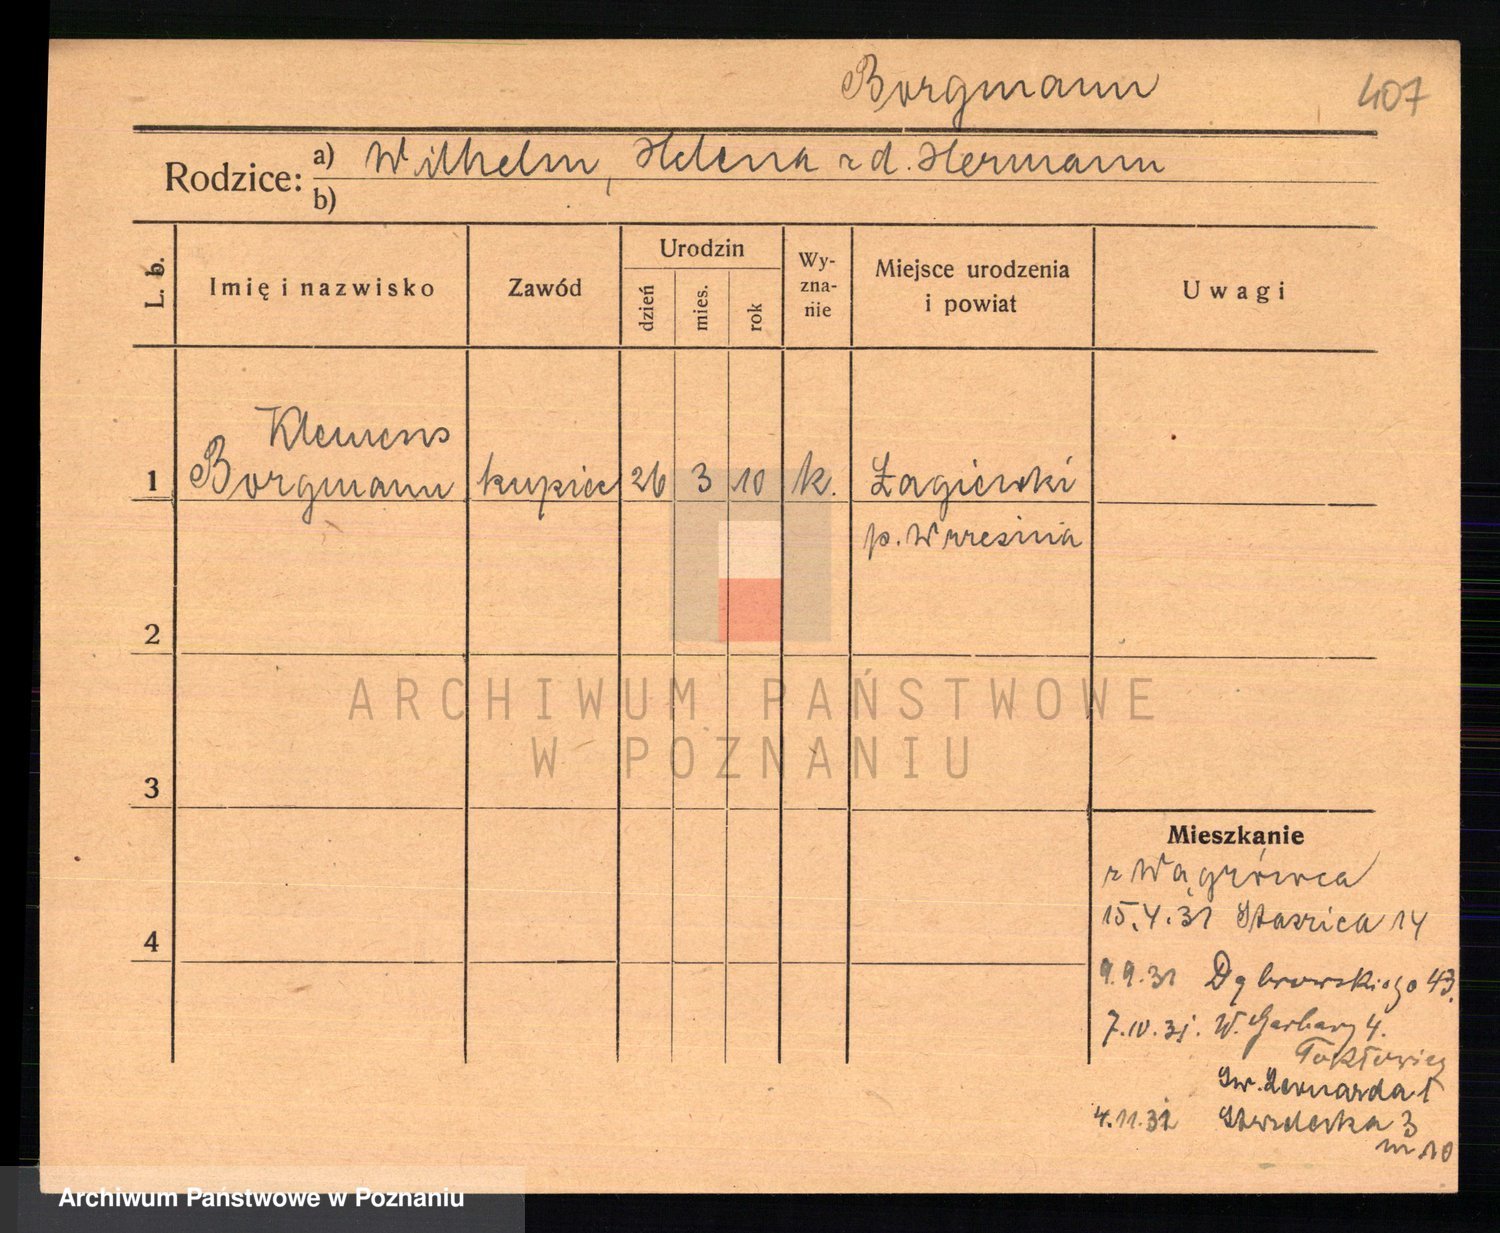 Borgmann 407
Rodzice: a) Wilhelm, Helena zd. Hermann
b)
L. b. Imię i nazwisko Zawód Urodzin dzień mies. rok Wyzna-nie Miejsce urodzenia i powiat Uwagi
Klemens
1 Borgmann kupiec 26 3 10 k. Łagiewki
p. Września
2
ARCHIWUM PAŃSTWOWE
W POZNANIU
3
Mieszkanie
z Wągrówca
15.4.31 Staszica 14
4
9.9.31 Dąbrowskiego 43.
7.10.31. W. Garbary 4.
Św. Leonarda 1
4.11.32 3
m 10
Archiwum Państwowe w Poznaniu